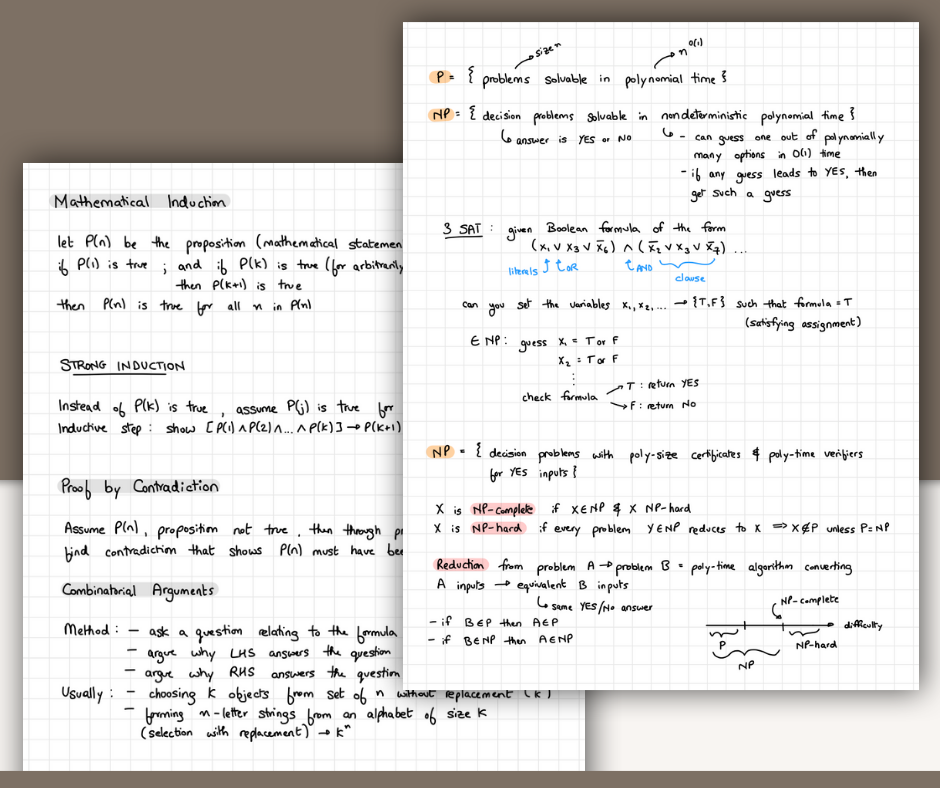 Mathematical Induction
let P(n) be the proposition (mathematical statemen
if P(1) is true ; and if P(k) is true (for arbitrarily
then P(k+1) is true
then P(n) is true for all n in P(n)
STRONG INDUCTION
Instead of P(k) is true, assume P(j) is true for
Inductive step : show [P(1) ∧ P(2) ∧ ... ∧ P(k)] → P(k+1)
Proof by Contradiction
Assume P(n), proposition not true, then through
find contradiction that shows P(n) must have
Combinatorial Arguments
Method : - ask a question relating to the formula
- argue why LHS answers the question
- argue why RHS answers the question
Usually : - choosing k objects from set of n without replacement
- forming n-letter strings from an alphabet of size k
(selection with replacement) → kⁿ
size n
n^O(1)
P = { problems solvable in polynomial time }
NP = { decision problems solvable in nondeterministic polynomial time }
↳ answer is YES or NO
↳ - can guess one out of polynomially
many options in O(1) time
- if any guess leads to YES, then
get such a guess
3 SAT : given Boolean formula of the form
(x₁ ∨ x₃ ∨ x̅₆) ∧ (x̅₂ ∨ x₃ ∨ x̅₇) ...
literals ↑ ↑ OR ↑ AND
clause
can you set the variables x₁, x₂, ... → {T,F} such that formula = T
(satisfying assignment)
∈ NP : guess x₁ = T or F
x₂ = T or F
⋮
check formula → T : return YES
→ F : return NO
NP = { decision problems with poly-size certificates & poly-time verifiers
for YES inputs }
X is NP-complete if X ∈ NP & X NP-hard
X is NP-hard if every problem Y ∈ NP reduces to X ⇒ X ∉ P unless P = NP
Reduction from problem A → problem B = poly-time algorithm converting
A inputs → equivalent B inputs
↳ same YES/NO answer
- if B ∈ P then A ∈ P
- if B ∈ NP then A ∈ NP
NP-complete
difficulty
P
NP-hard
NP